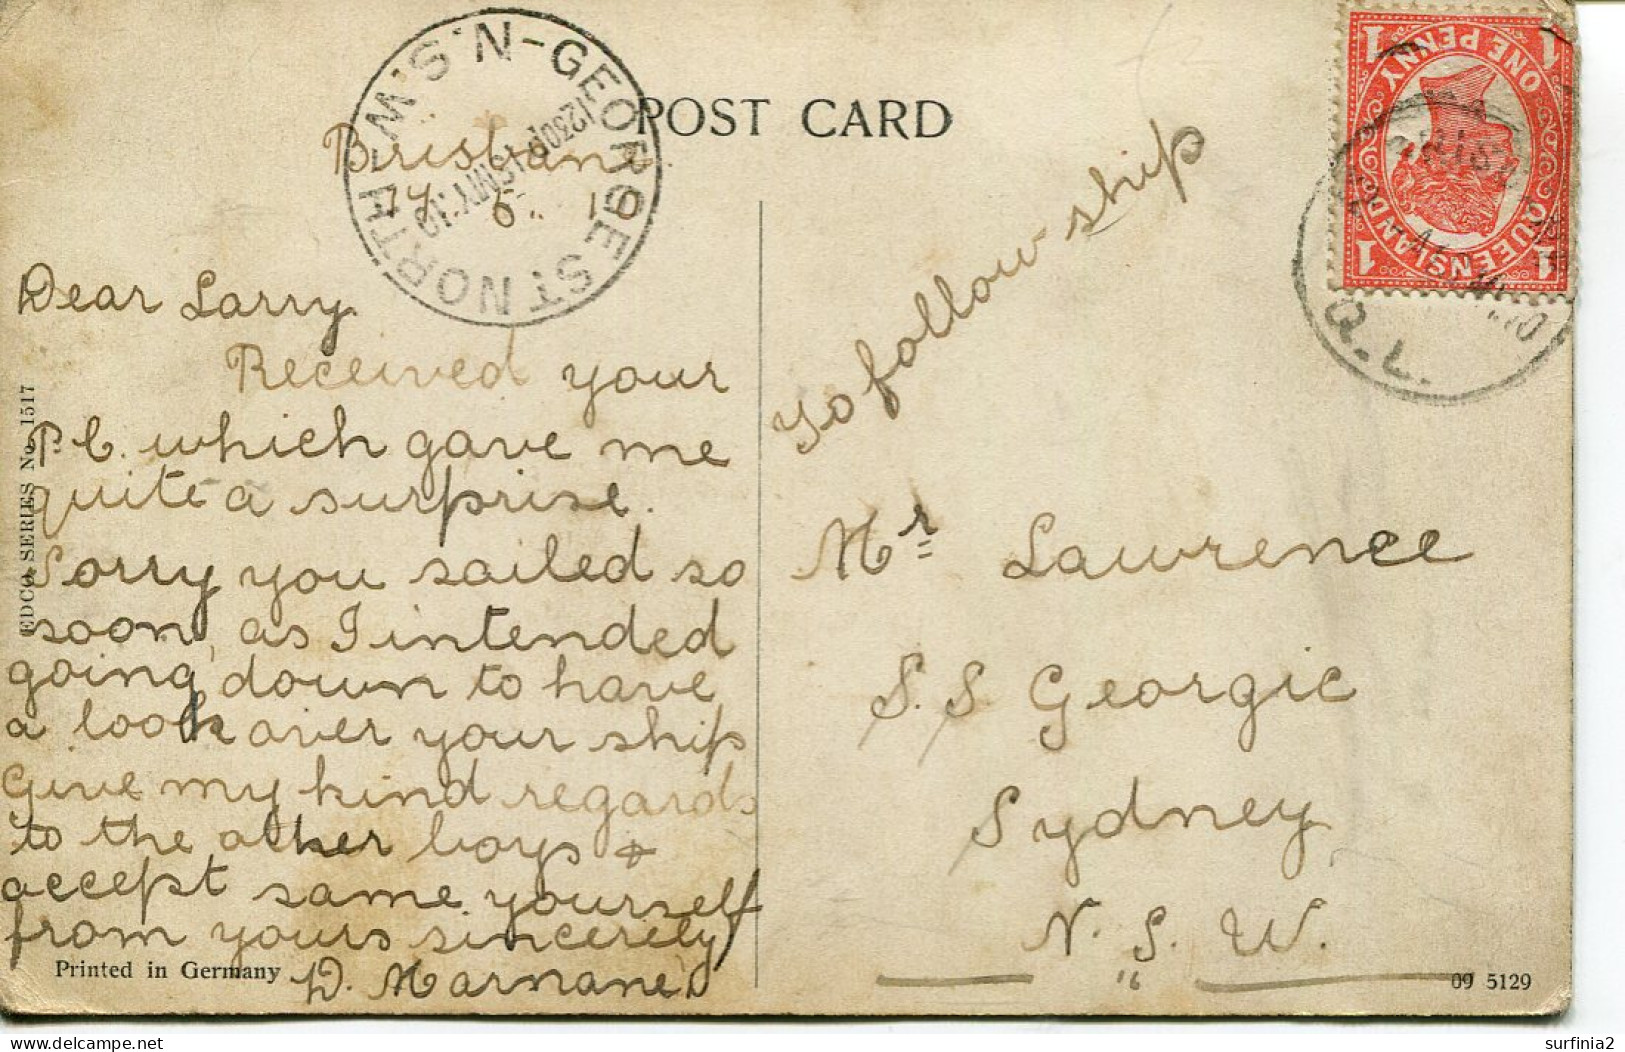 POST CARD
GEORGE ST NORTH - N.S.W.
1230P 16MY.10
Brisbane
14 5 10
Dear Larry
Received your
P.C. which gave me
quite a surprise.
Sorry you sailed so
soon, as I intended
going down to have
a look over your ship
Give my kind regards
to the other boys &
accept same yourself
from yours sincerely
D. Marnane
EDCO. SERIES No. 1517
Printed in Germany
To follow ship
Mr Lawrence
S.S Georgic
Sydney
N. S. W.
09 5129
QUEENSLAND
ONE PENNY
1 1
1 1
Q.L.
surfinia2